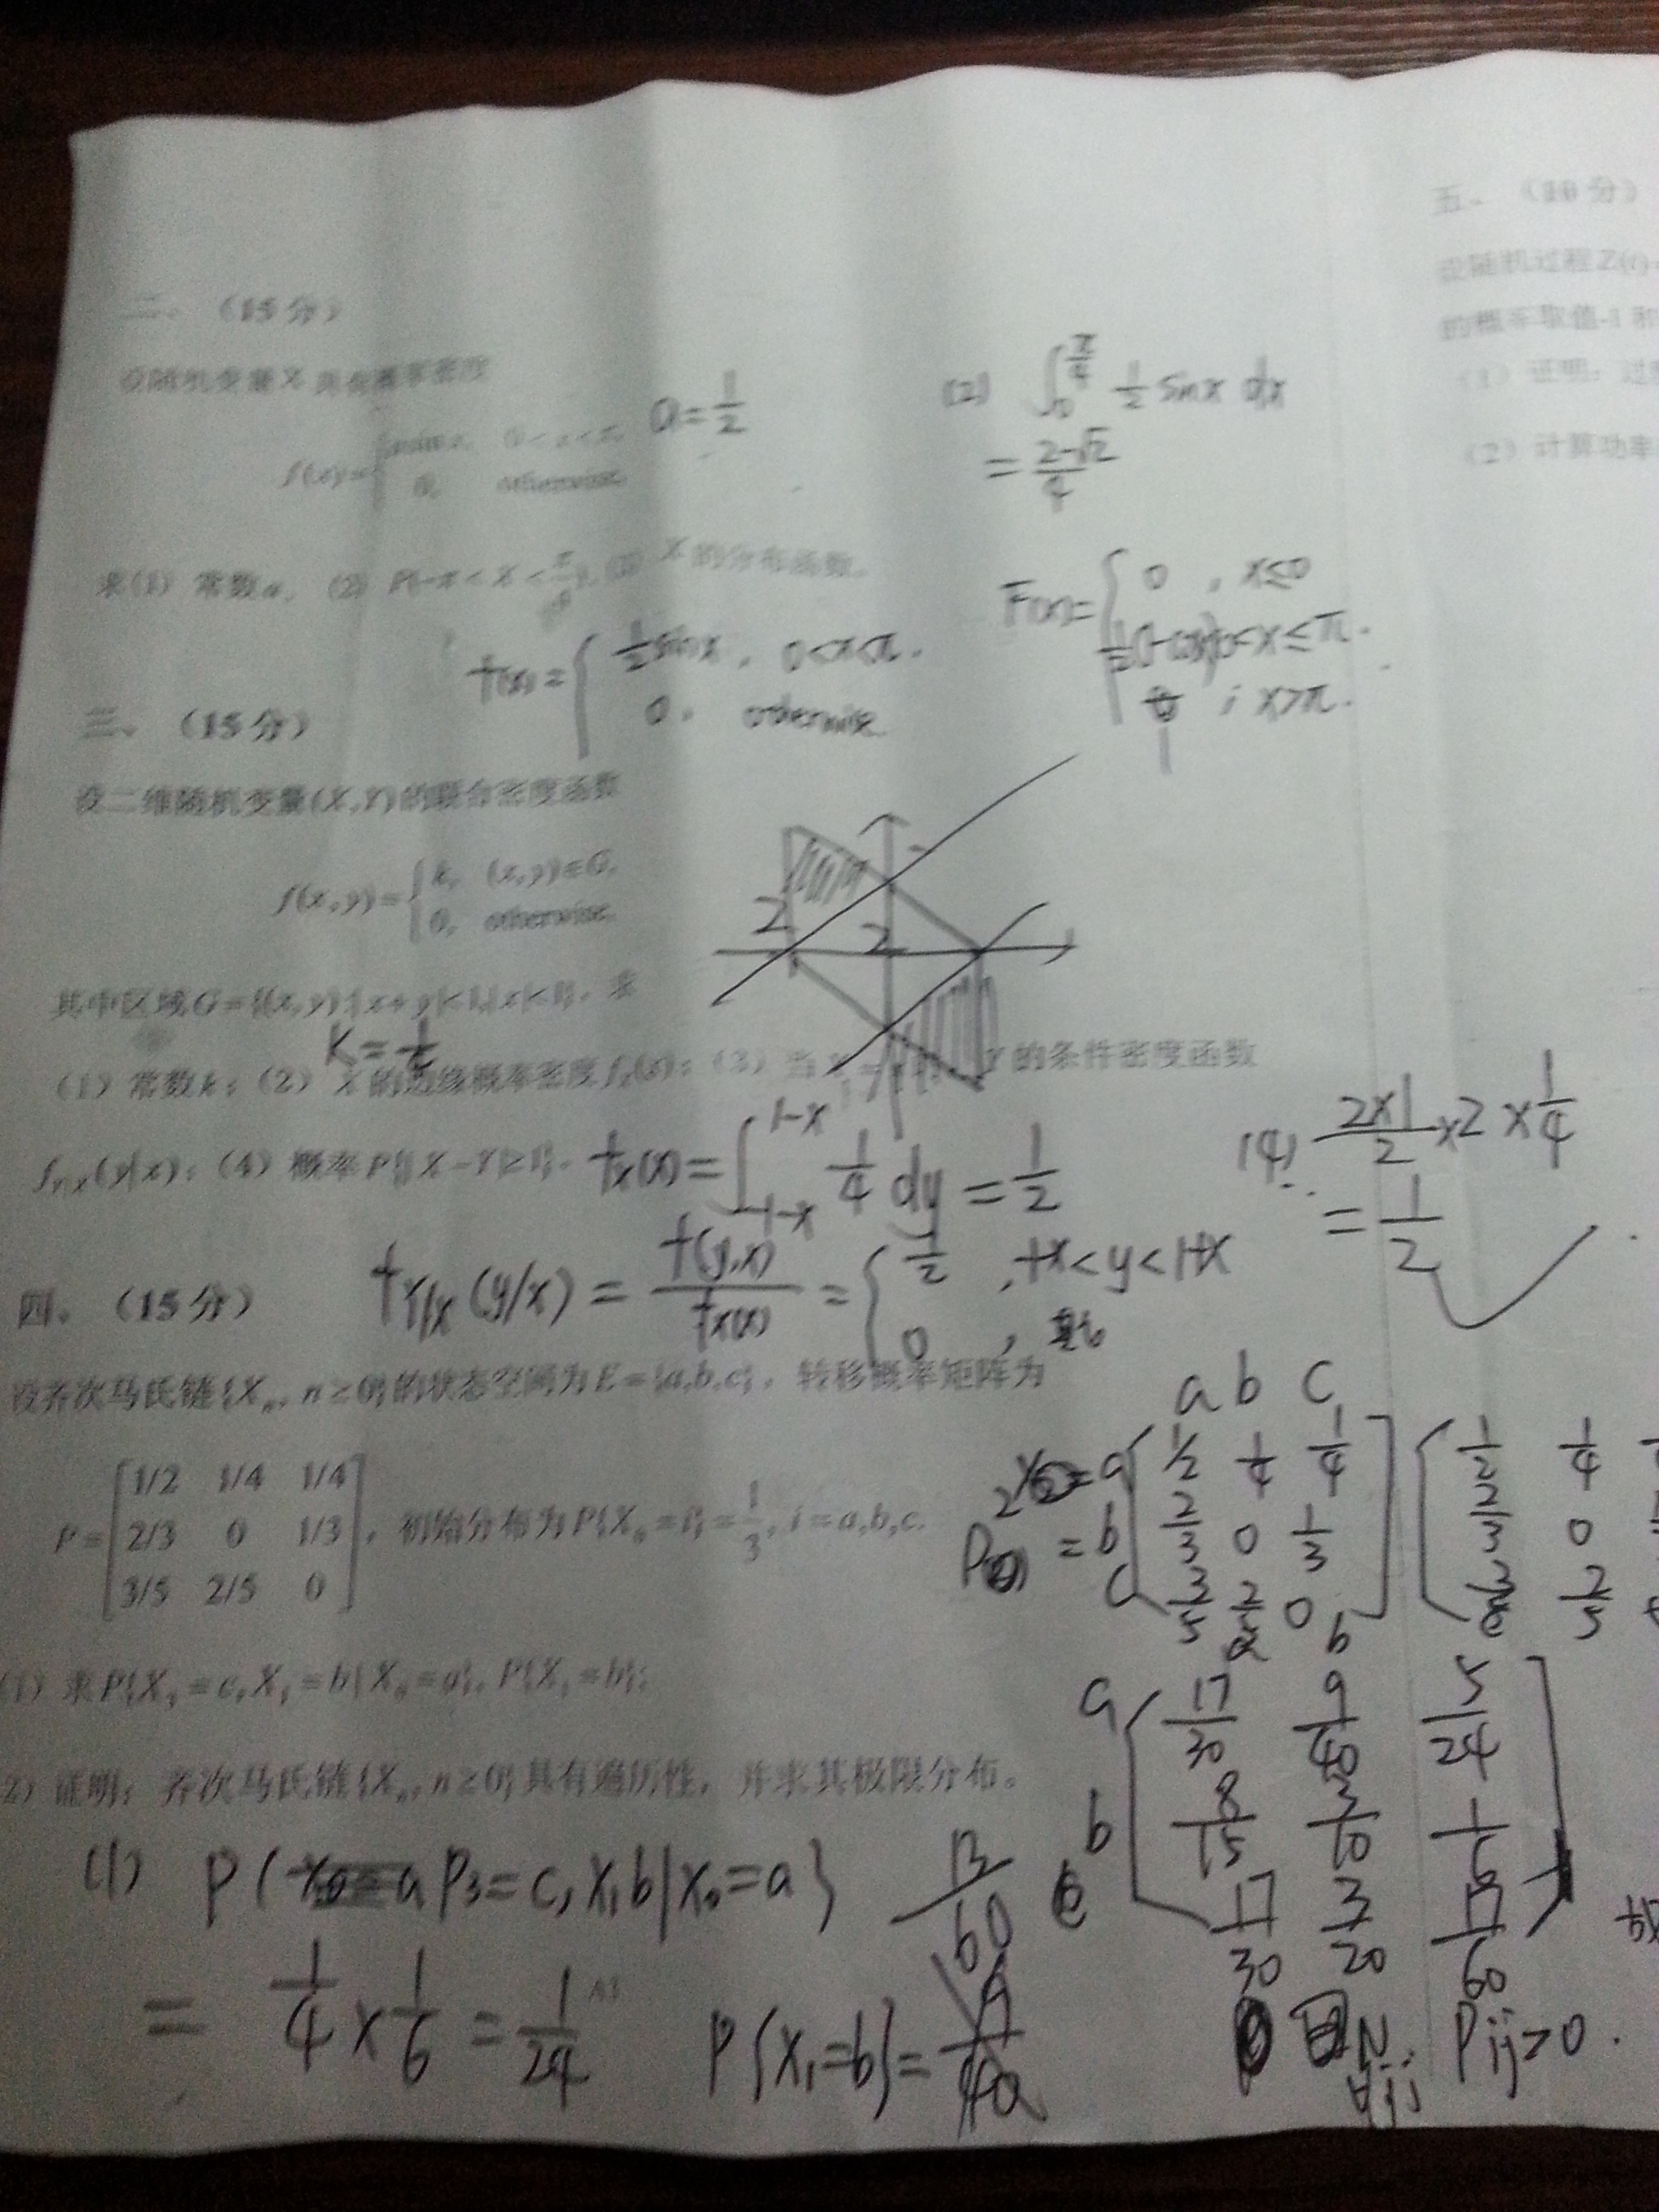 二、（15分）
设随机变量X具有概率密度
f(x)={asin x, 0<x<π,
0, otherwise.
a=1/2
求(1) 常数a, (2) P{-π<X<π/4}, (3) X的分布函数.
f(x)={ 1/2 sinx, 0<x<π.
0, otherwise.
(2) ∫₀^{π/4} 1/2 sinx dx
= (2-√2)/4
F(x)={ 0, x≤0
1/2(1-cosx) 0<x≤π.
1, x>π.
三、（15分）
设二维随机变量(X,Y)的联合密度函数
f(x,y)={k, (x,y)∈G,
0, otherwise.
2 2
其中区域G={(x,y):|x+y|<1,|x|<1}, 求
K=1/4
(1) 常数k; (2) X的边缘概率密度f_X(x); (3) 当 Y的条件密度函数
f_{Y|X}(y|x); (4) 概率P{|X-Y|≥1}.
f_X(x)=∫_{-1-x}^{1-x} 1/4 dy = 1/2
f_{Y/X}(y/x) = f(y,x)/f_X(x) = { 1/2, -1-x<y<1-x
0, 其他
(4) (2×1)/2 ×2 ×1/4
= 1/2
四、（15分）
设齐次马氏链{Xₙ, n≥0}的状态空间为E={a,b,c}, 转移概率矩阵为
P=[1/2 1/4 1/4
2/3 0 1/3
3/5 2/5 0], 初始分布为P{X₀=i}=1/3, i=a,b,c.
(1) 求P{X₃=c,X₁=b|X₀=a}, P{X₁=b};
2) 证明: 齐次马氏链{Xₙ, n≥0}具有遍历性, 并求其极限分布。
a b c
a 1/2 1/4 1/4
b 2/3 0 1/3
c 3/5 2/5 0
1/2 1/4
2/3 0
3/5 2/5
a 17/30 9/40 5/24
b 8/15 3/10 1/6
c 17/30 3/20 17/60
(1) P( P₃=c, X₁b|X₀=a}
= 1/4 × 1/6 = 1/24
13/60
P{X₁=b}=
∀ij Pij>0.
故
五、（10分）
设随机过程Z(t)
的概率取值-1和
(1) 证明: 过
(2) 计算功率